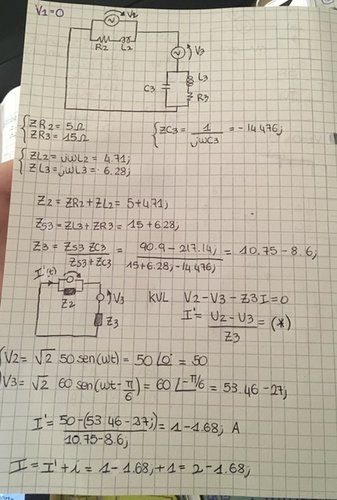 V1=0
V2
R2 L2
V3
C3
L3
R3
ZR2 = 5Ω
ZR3 = 15Ω
ZC3 = 1/jωC3 = -14.476j
ZL2 = jωL2 = 4.71j
ZL3 = jωL3 = 6.28j
Z2 = ZR2 + ZL2 = 5+4.71j
ZS3 = ZL3 + ZR3 = 15+6.28j
Z3 = ZS3 ZC3/ZS3+ZC3 = 90.9-217.14j/15+6.28j-14.476j = 10.75-8.6j
I'(t)
Z2
V3
Z3
KVL V2-V3-Z3I=0
I' = V2-V3/Z3 = (*)
V2 = √2 50 sen(wt) = 50 ∠0 = 50
V3 = √2 60 sen(wt-π/6) = 60 ∠-π/6 = 53.46-27j
I' = 50-(53.46-27j)/10.75-8.6j = 1-1.68j A
I = I'+i = 1-1.68j+1 = 2-1.68j